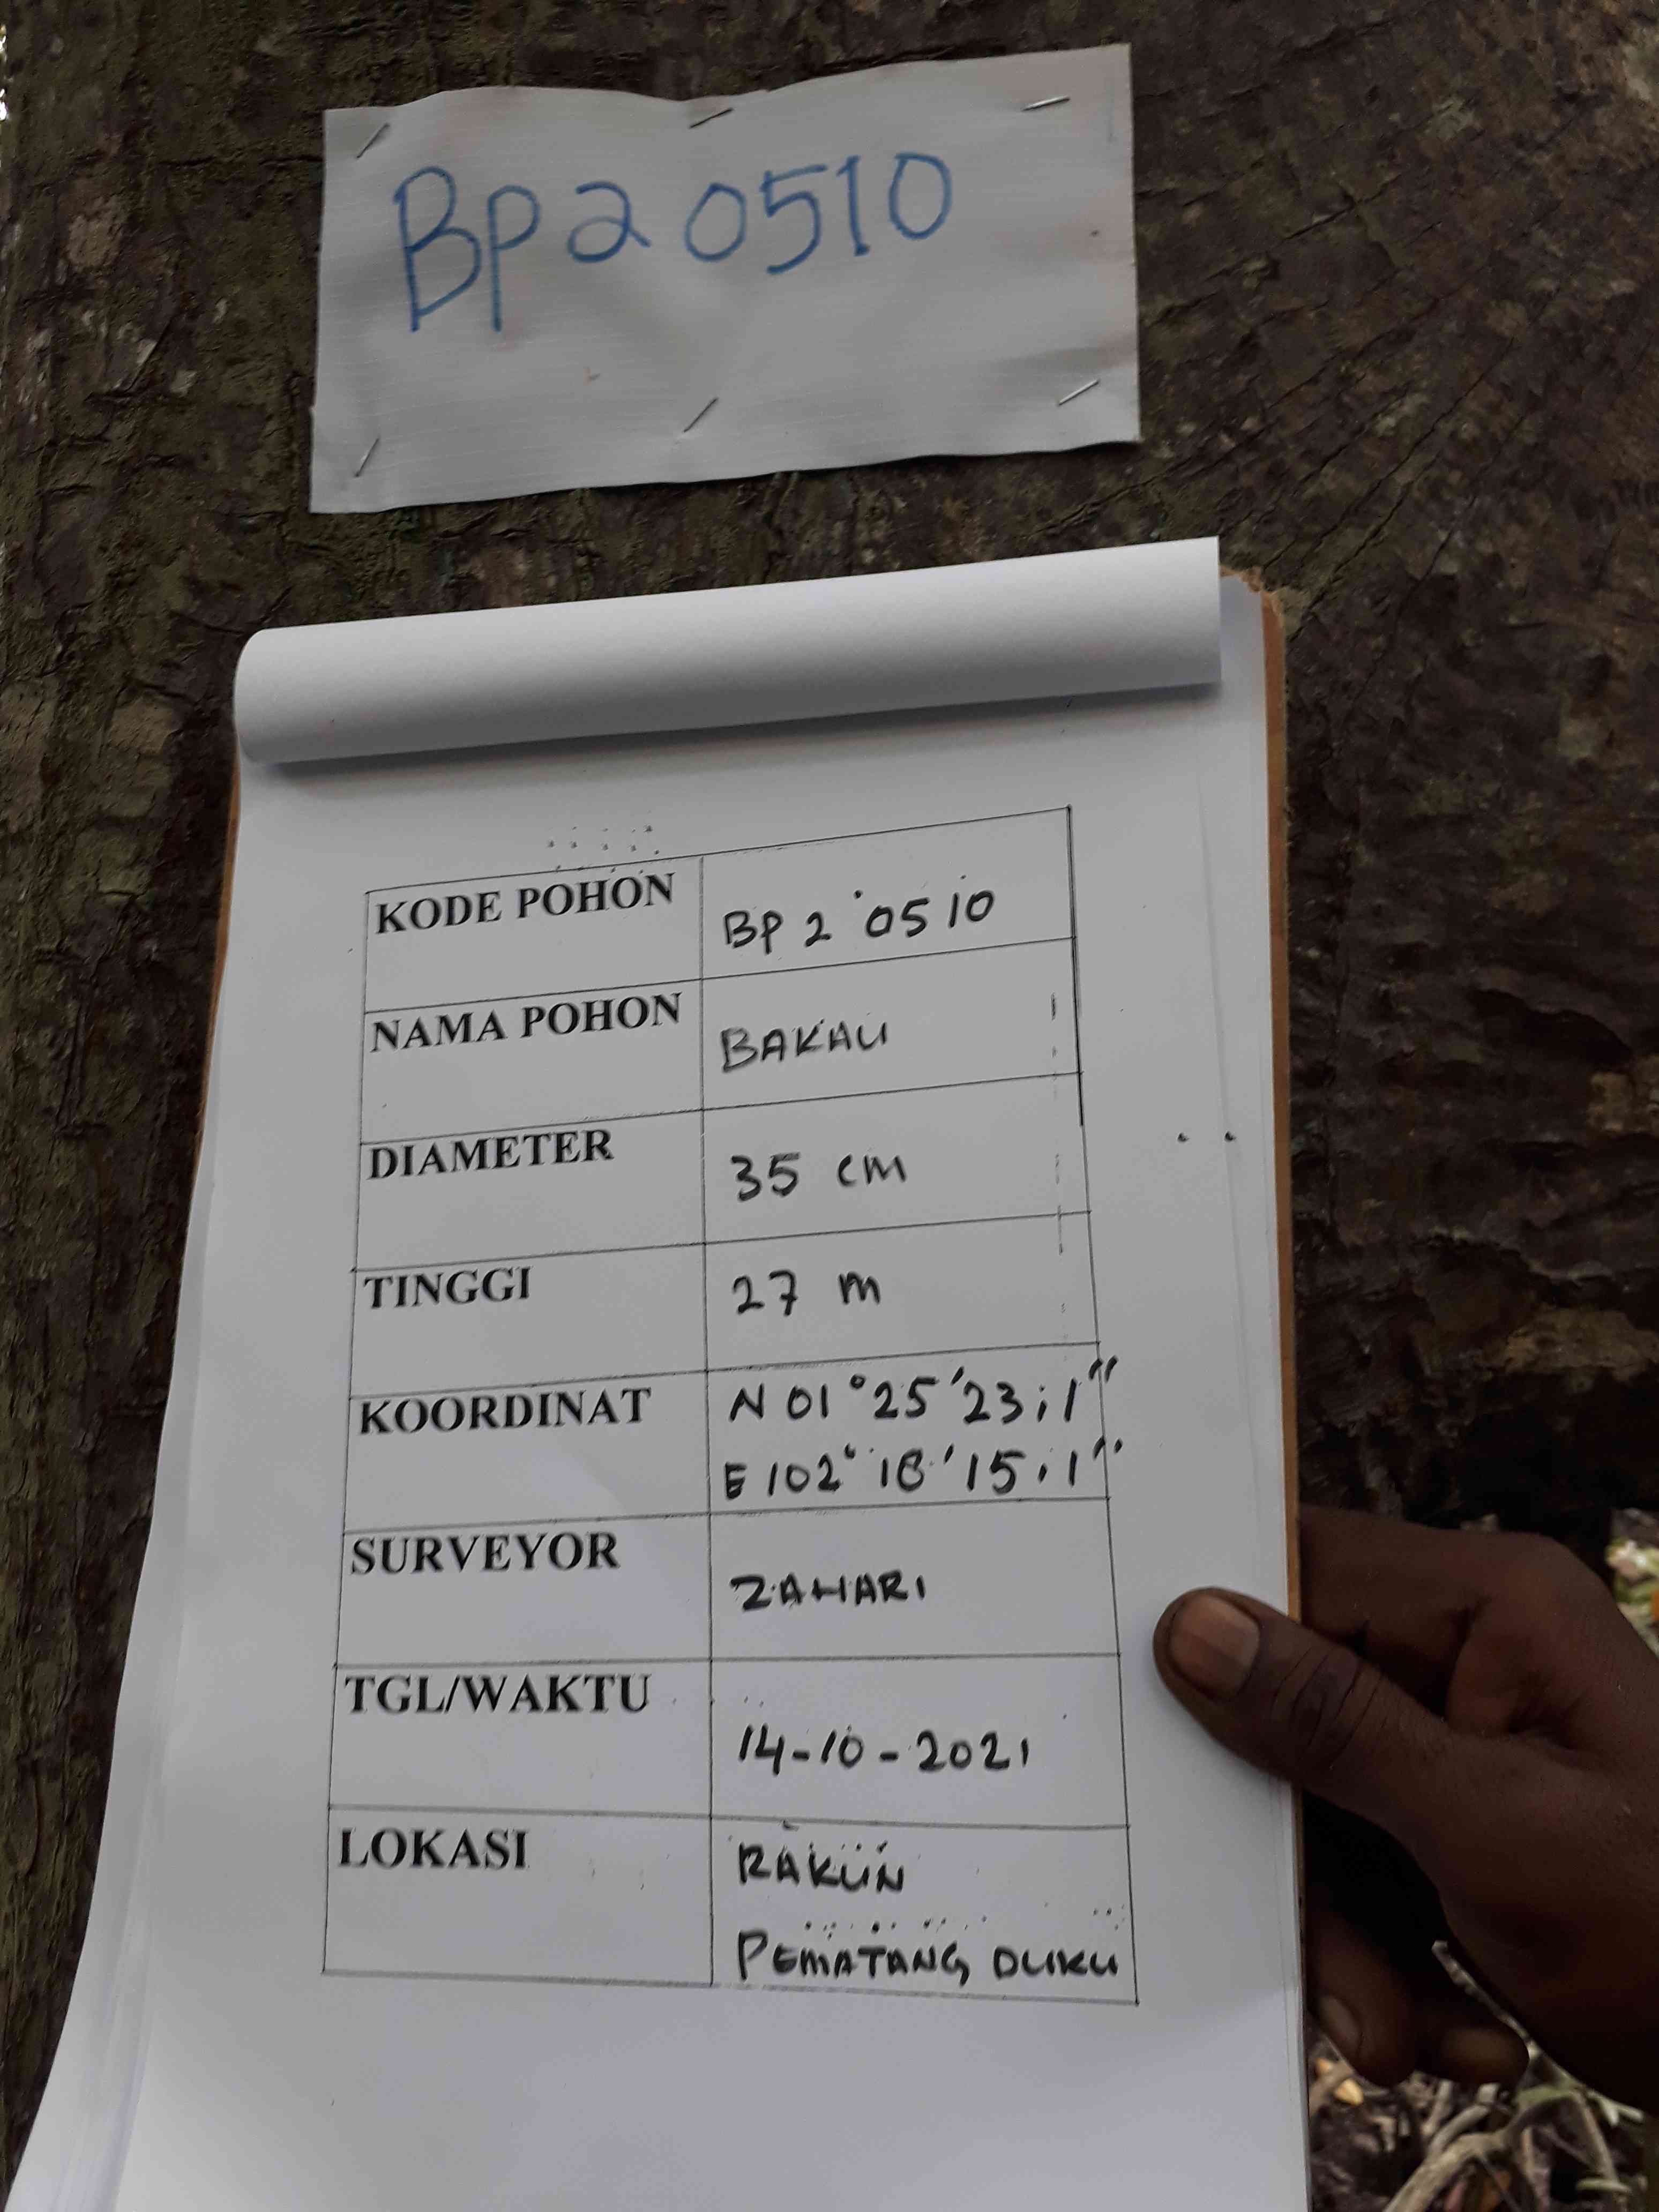 BP2 0510
KODE POHON BP 2 0510
NAMA POHON BAKAU
DIAMETER 35 cm
TINGGI 27 m
KOORDINAT N 01°25'23;1"
E 102° 18'15.1"
SURVEYOR ZAHARI
TGL/WAKTU 14-10-2021
LOKASI RAKUN
PEMATANG DUKU